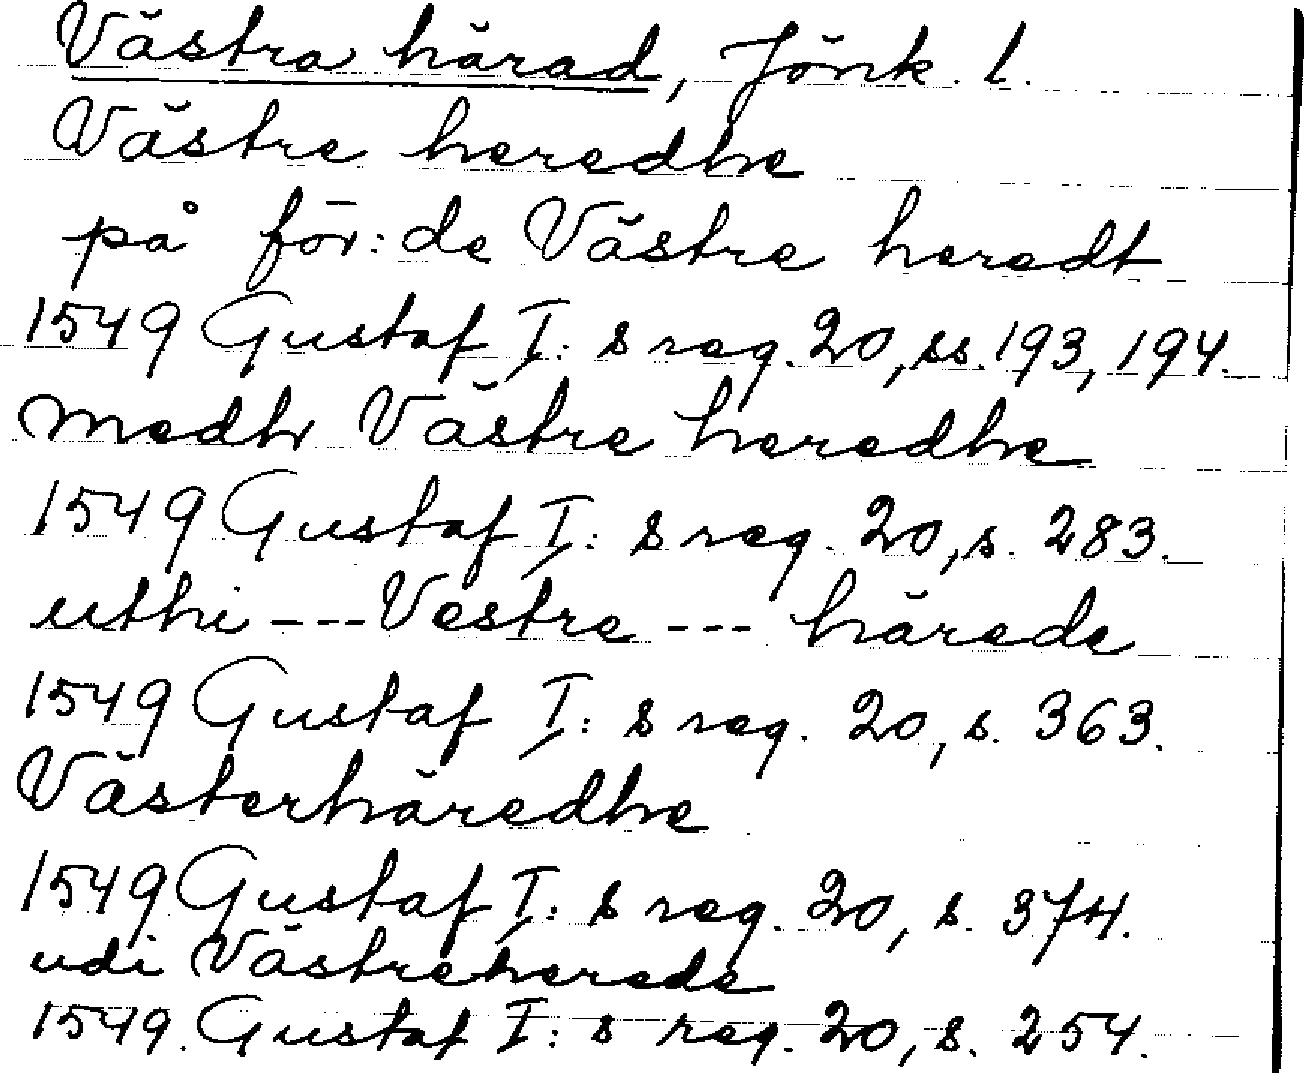 Västra härad, Jönk. l.
Västre heredhe
på för:de Västre heredt
1549 Gustaf I:s reg. 20, ss. 193, 194.
medh Västre heredhe
1549 Gustaf I:s reg. 20, s. 283.
uthi --- Vestre --- härede
1549 Gustaf I:s reg. 20, s. 363.
Västerhäredhe
1549 Gustaf I:s reg. 20, s. 374.
udi Västreherede
1549. Gustaf I:s reg. 20, s. 254.